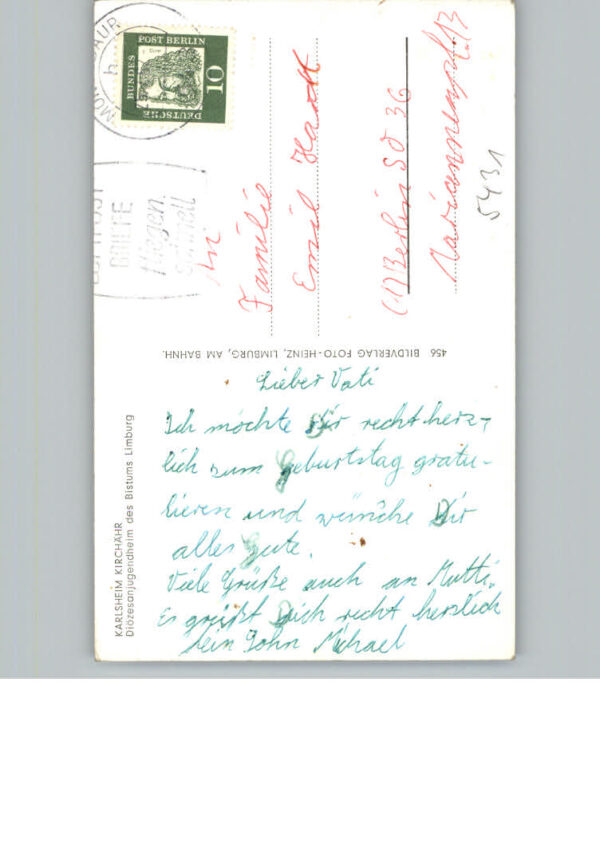 Lieber Vati
Ich möchte Dir recht herz-
lich zum Geburtstag gratu-
lieren und wünsche Dir
alles Gute.
Viele Grüße auch an Mutti.
Es grüßt Dich recht herzlich
Dein Sohn Michael
An
Familie
Emil
(1) Berlin SO 36
5431
KARLSHEIM KIRCHÄHR
Diözesanjugendheim des Bistums Limburg
456 BILDVERLAG FOTO-HEINZ, LIMBURG, AM BAHNH.
DEUTSCHE
BUNDES
POST BERLIN
10
h
LUFTPOST
BRIEFE
fliegen
schnell